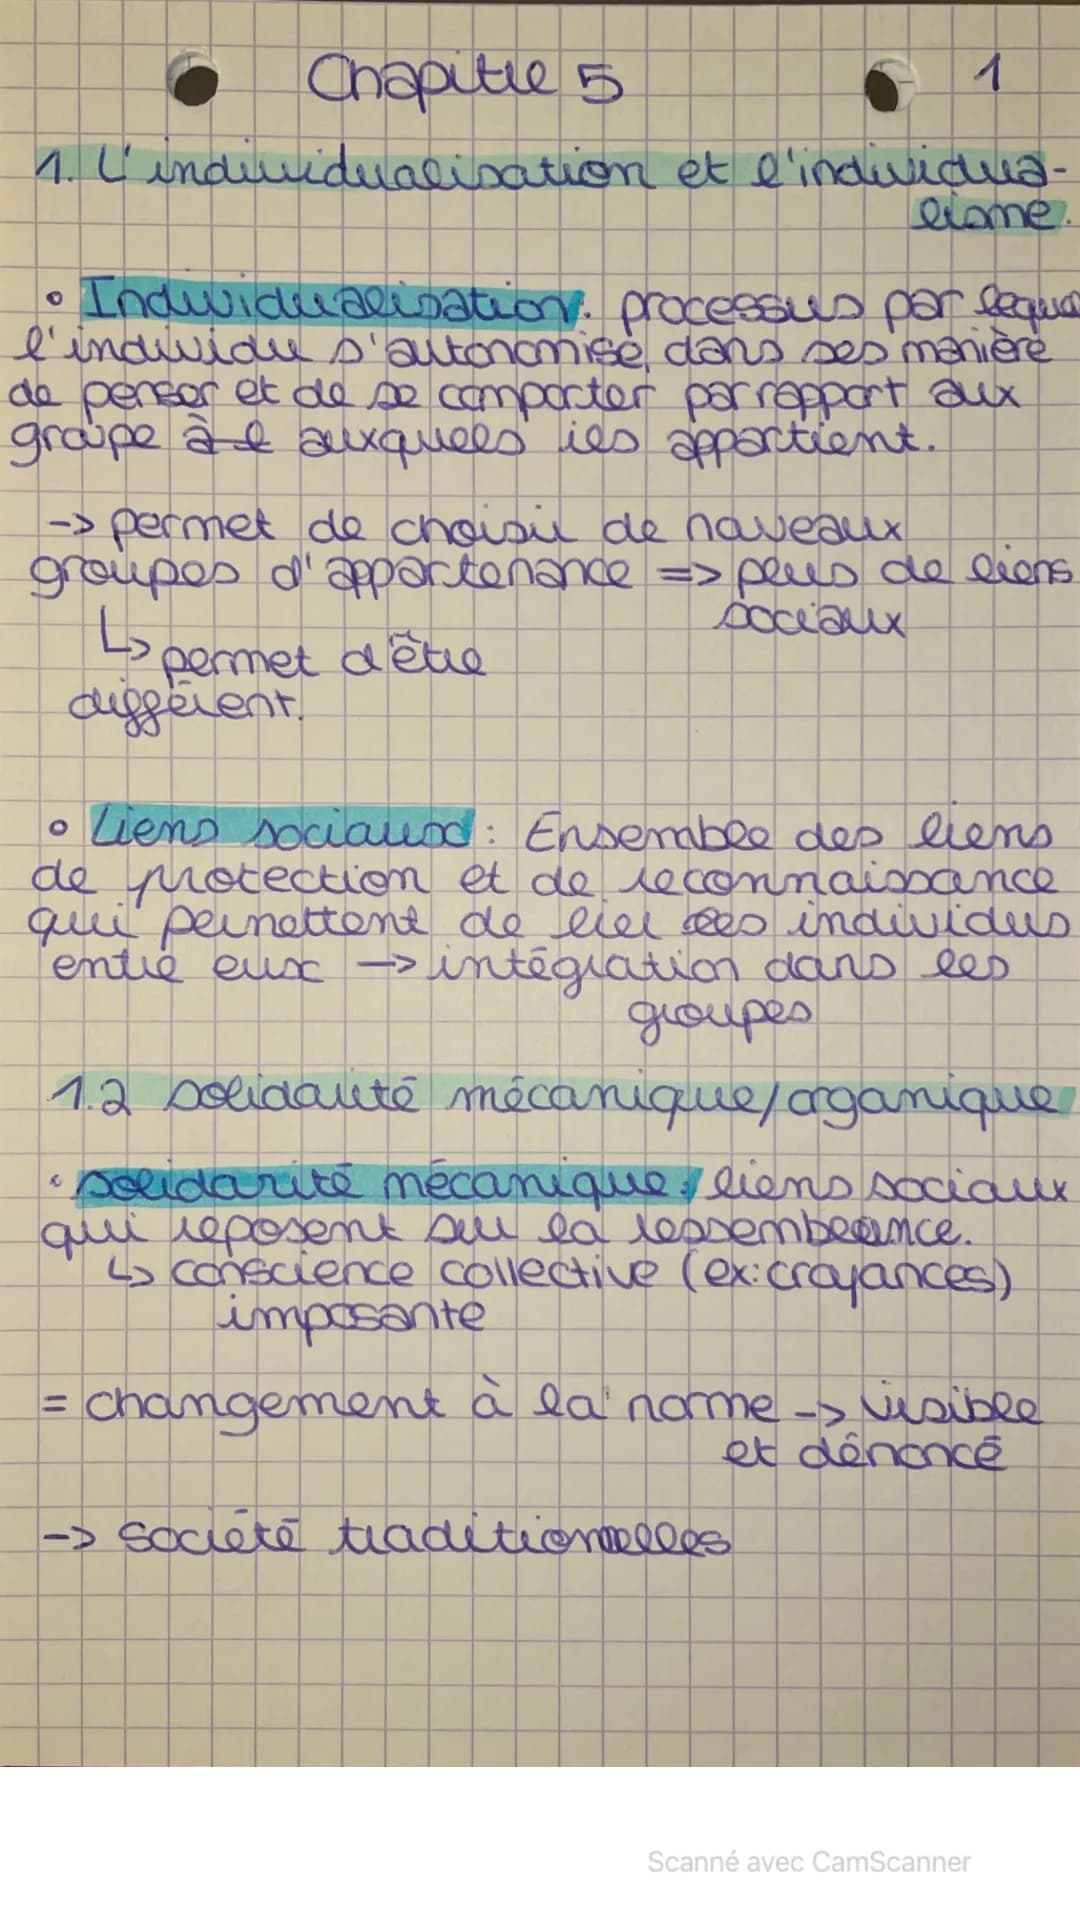 Chapitre 5
1
1. L'individualisation et l'individua-
lisme.
• Individualisation : processus par lequel
l'individu s'autonomise, dans ses manière
de penser et de se comporter par rapport aux
groupe à l auxquels ils appartient.
-> permet de choisir de nouveaux
groupes d'appartenance => plus de liens
sociaux
↳ permet d'être
différent.
• Liens sociaux : Ensemble des liens
de protection et de reconnaissance
qui permettent de lier les individus
entre eux -> intégration dans les
groupes
1.2 solidarité mécanique/organique
• solidarité mécanique : liens sociaux
qui reposent sur la ressemblance.
↳ conscience collective (ex: croyances)
imposante
= changement à la norme -> visible
et dénoncé
-> société traditionnelles
Scanné avec CamScanner